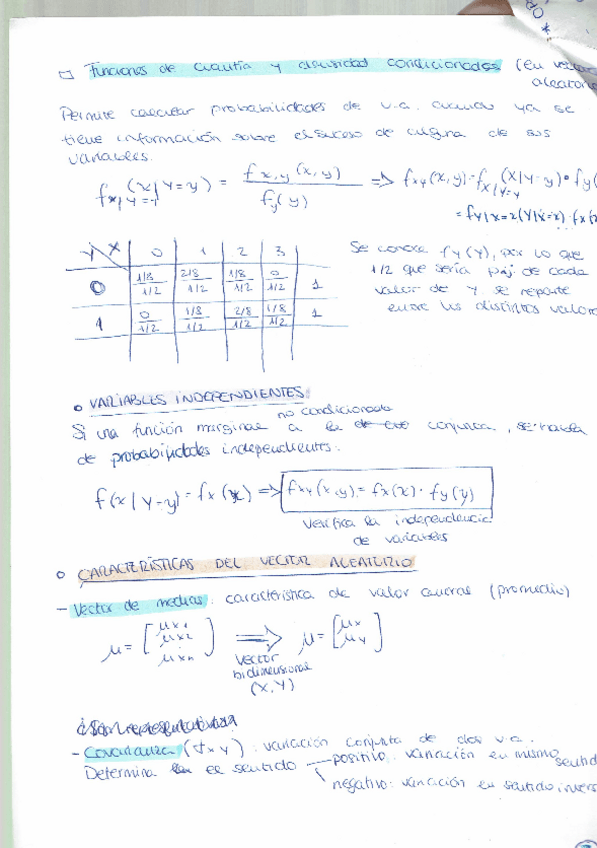 Funciones de cuantía y densidad condicionadas (en vector
aleatorio
Permite calcular probabilidades de v.a. cuando ya se
tiene información sobre el suceso de alguna de sus
variables.
f x|Y=y (x|Y=y) = f x,y (x,y) / fy(y) => fxy(x,y) = f x|Y=y (x|Y=y) · fy(
= f Y|x=x (Y|X=x) · fx(x
Y X 0 1 2 3
0 1/8 / 1/2 2/8 / 1/2 1/8 / 1/2 0 / 1/2 1
1 0 / 1/2 1/8 / 1/2 2/8 / 1/2 1/8 / 1/2 1
Se conoce fy(Y), por lo que
1/2 que sería de cada
valor de Y se reparte
entre los distintos valore
VARIABLES INDEPENDIENTES:
no condicionada
Si una función marginal a la conjunta, se habla
de probabilidades independientes:
f(x|Y=y) = fx(x) => fxy(x,y) = fx(x) · fy(y)
Verifica la independencia
de variables
CARACTERÍSTICAS DEL VECTOR ALEATORIO
- Vector de medias: característica de valor (promedio)
μ = [μx1 μx2 μxn] => μ = [μx μy]
Vector
bidimensional
(X,Y)
- Covarianza (σxy): variación conjunta de dos v.a.
Determina el sentido
positivo: variación en mismo sentid
negativo: variación en sentido invers